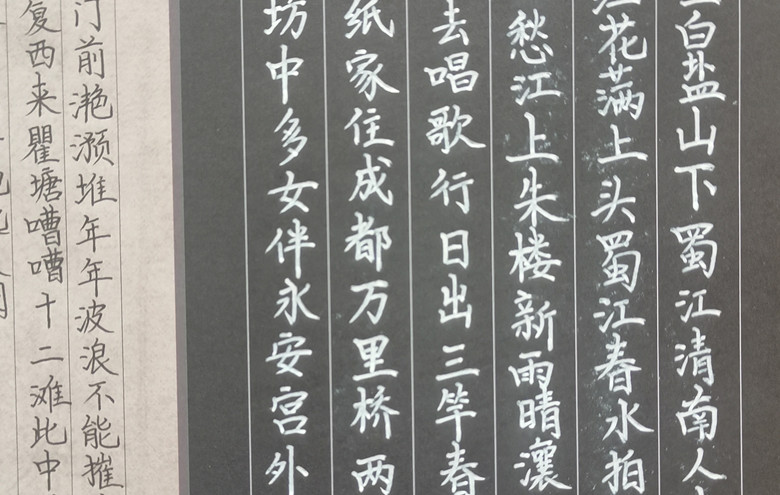 白盐山下蜀江清南人
花满上头蜀江春水拍
愁江上朱楼新雨晴瀼
去唱歌行日出三竿春
纸家住成都万里桥两
坊中多女伴永安宫外
门前滟滪堆年年波浪不能摧
复西来瞿塘嘈嘈十二滩此中